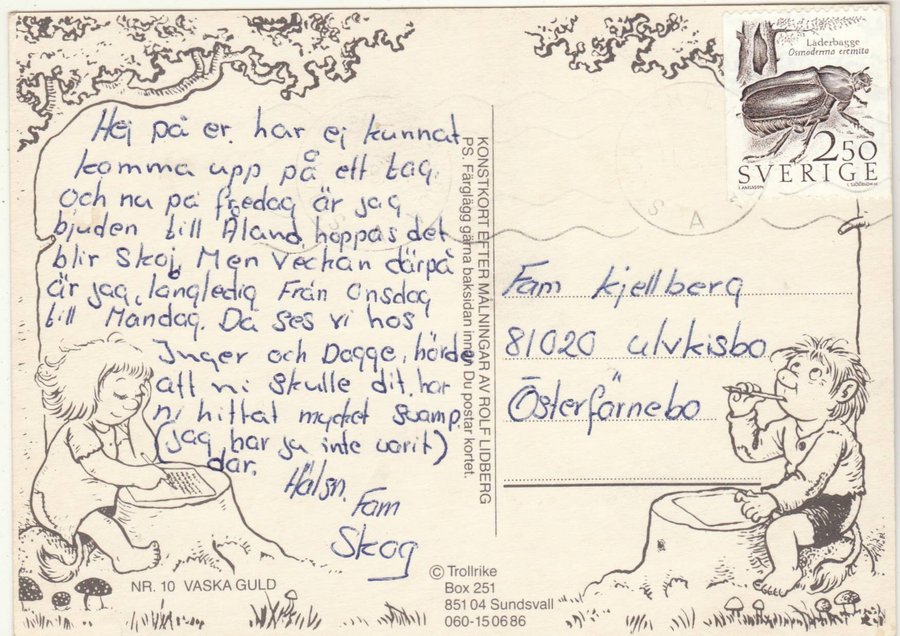 Hej på er. har ej kunnat
komma upp på ett tag.
Och nu på fredag är jag
bjuden till Åland, hoppas det
blir Skoj. Men Veckan därpå
är jag långledig Från Onsdag
till Mandag. Då ses vi hos
Inger och Dagge, hörde
att ni Skulle dit. har
ni hittat mycket Svamp.
(jag har ju inte varit)
där.
Hälsn.
Fam
Skog
NR. 10 VASKA GULD
KONSTKORT EFTER MÅLNINGAR AV ROLF LIDBERG
PS. Färglägg gärna baksidan innen Du postar kortet.
© Trollrike
Box 251
851 04 Sundsvall
060-15 06 86
Läderbagge
Osmoderma eremita
2.50
SVERIGE
Fam Kjellberg
81020 ulvkisbo
Österfärnebo